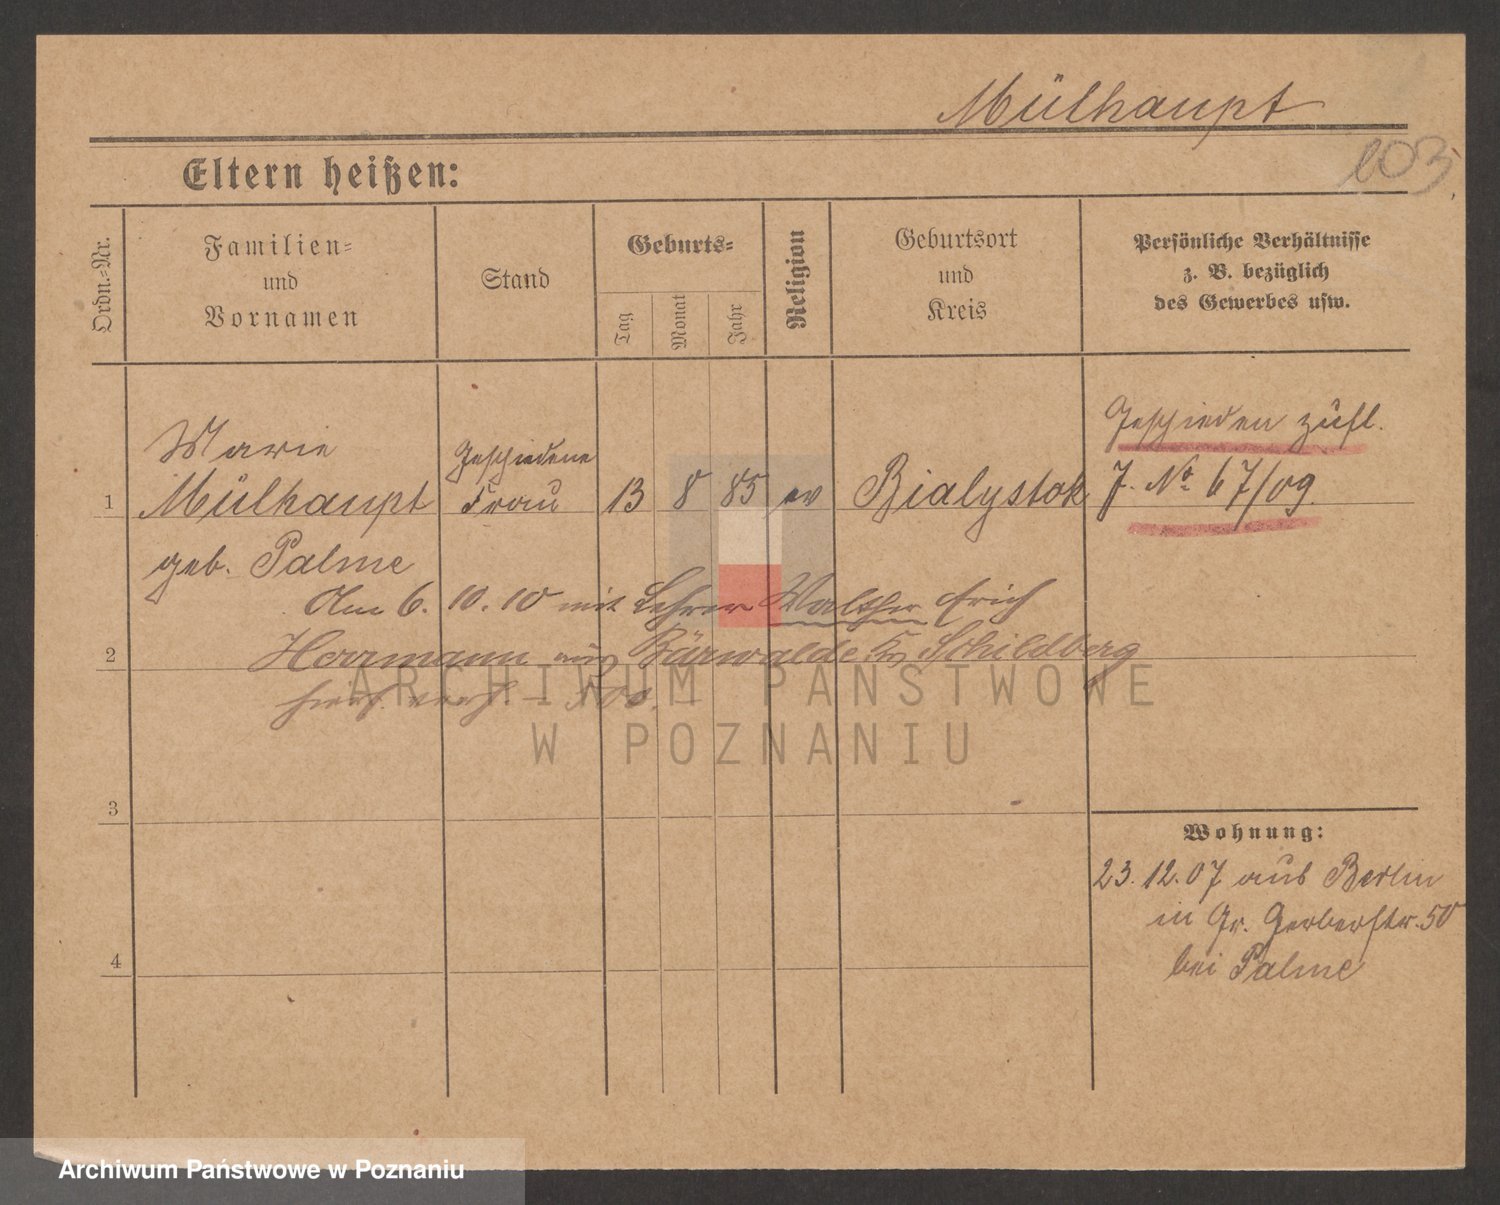 Mülhaupt
103
Eltern heißen:
Ordn.-Nr.
Familien-
und
Vornamen
Stand
Geburts-
Tag
Monat
Jahr
Religion
Geburtsort
und
Kreis
Persönliche Verhältnisse
z. B. bezüglich
des Gewerbes usw.
Marie
Mülhaupt
geb. Palme
Geschiedene
Frau
1
13
8
85
ev
Bialystok
Geschieden zufl.
J. No 67/09.
Am 6. 10. 10 mit Lehrer Walther Erich
2
Herrmann aus Bärwalde Kr Schildberg
hier verh.
3
4
Wohnung:
23. 12. 07 aus Berlin
in Gr. Gerberstr. 50
bei Palme
ARCHIWUM PAŃSTWOWE
W POZNANIU
Archiwum Państwowe w Poznaniu